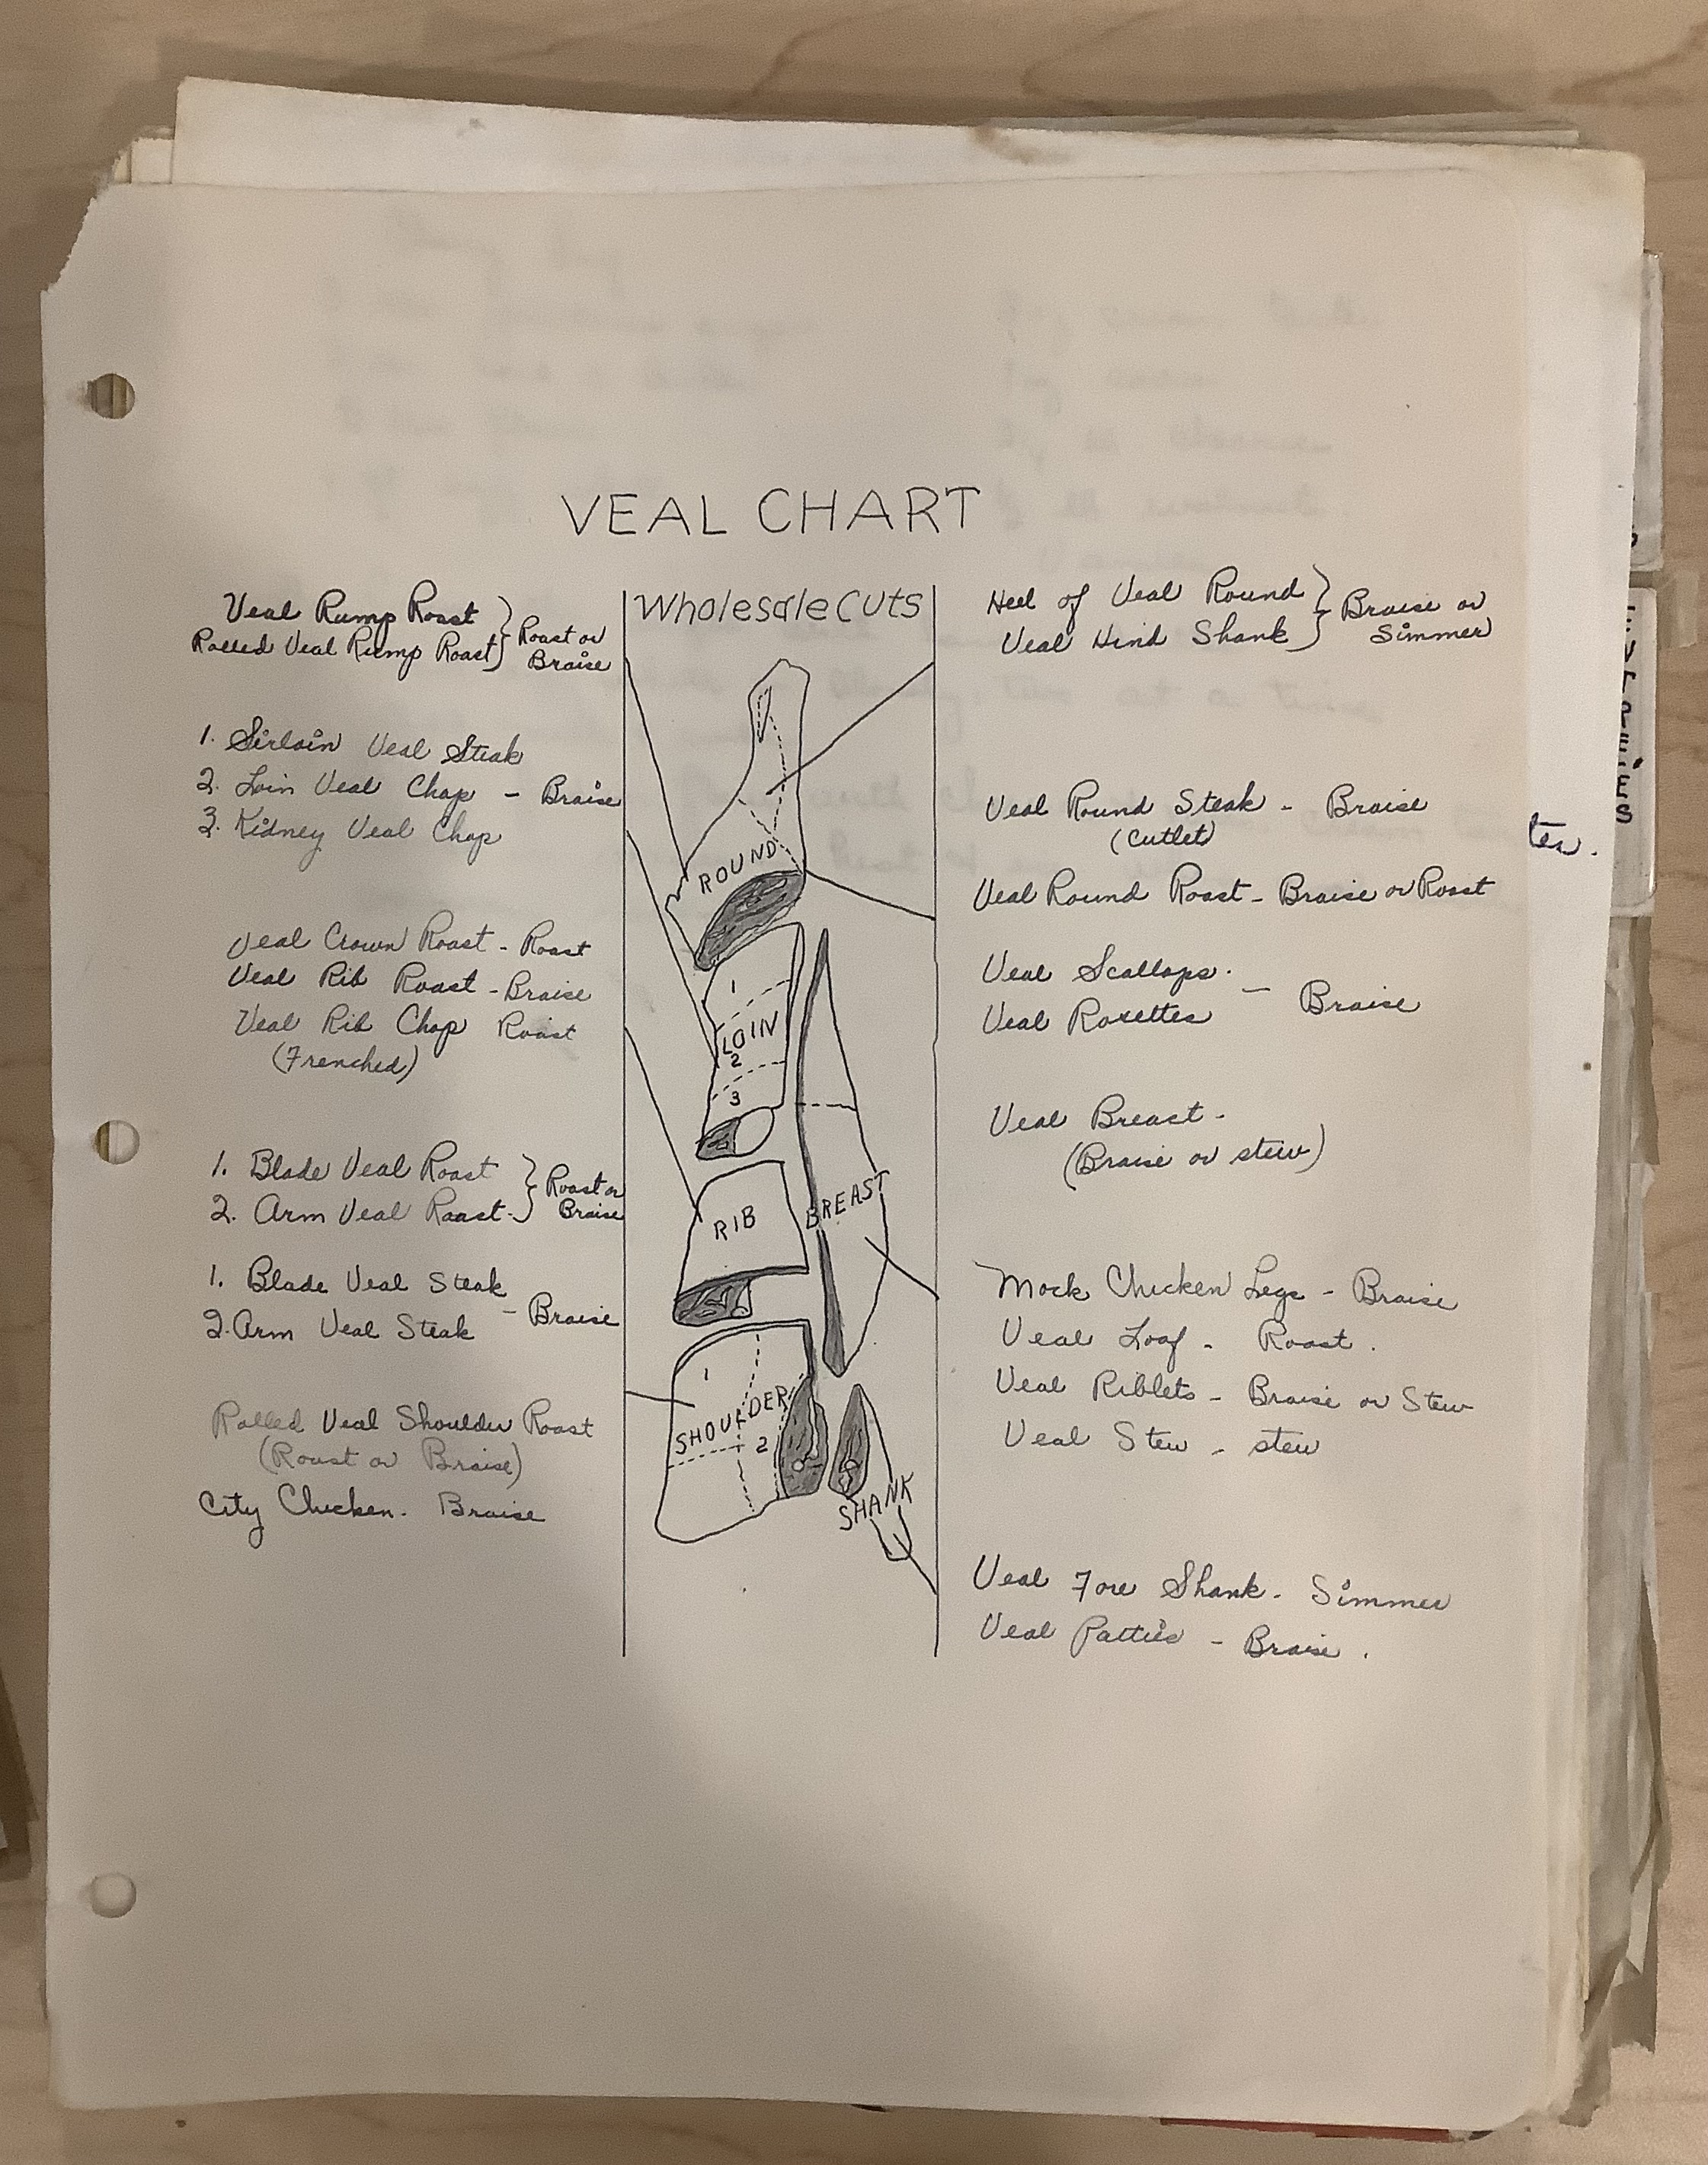 VEAL CHART
Veal Rump Roast
Rolled Veal Rump Roast
Roast or
Braise
1. Sirloin Veal Steak
2. Loin Veal Chop - Braise
3. Kidney Veal Chop
Veal Crown Roast - Roast
Veal Rib Roast - Braise
Veal Rib Chop Roast
(Frenched)
1. Blade Veal Roast
2. Arm Veal Roast.
Roast or
Braise
1. Blade Veal Steak
2. Arm Veal Steak
- Braise
Rolled Veal Shoulder Roast
(Roast or Braise)
City Chicken. Braise
Wholesale Cuts
ROUND
1
LOIN
2
3
RIB
BREAST
1
SHOULDER
2
SHANK
Heel of Veal Round
Veal Hind Shank
Braise or
Simmer
Veal Round Steak - Braise
(Cutlet)
Veal Round Roast - Braise or Roast
Veal Scallops.
Veal Rosettes
- Braise
Veal Breast -
(Braise or stew)
Mock Chicken Legs - Braise
Veal Loaf - Roast.
Veal Riblets - Braise or Stew
Veal Stew - stew
Veal Fore Shank - Simmer
Veal Patties - Braise.